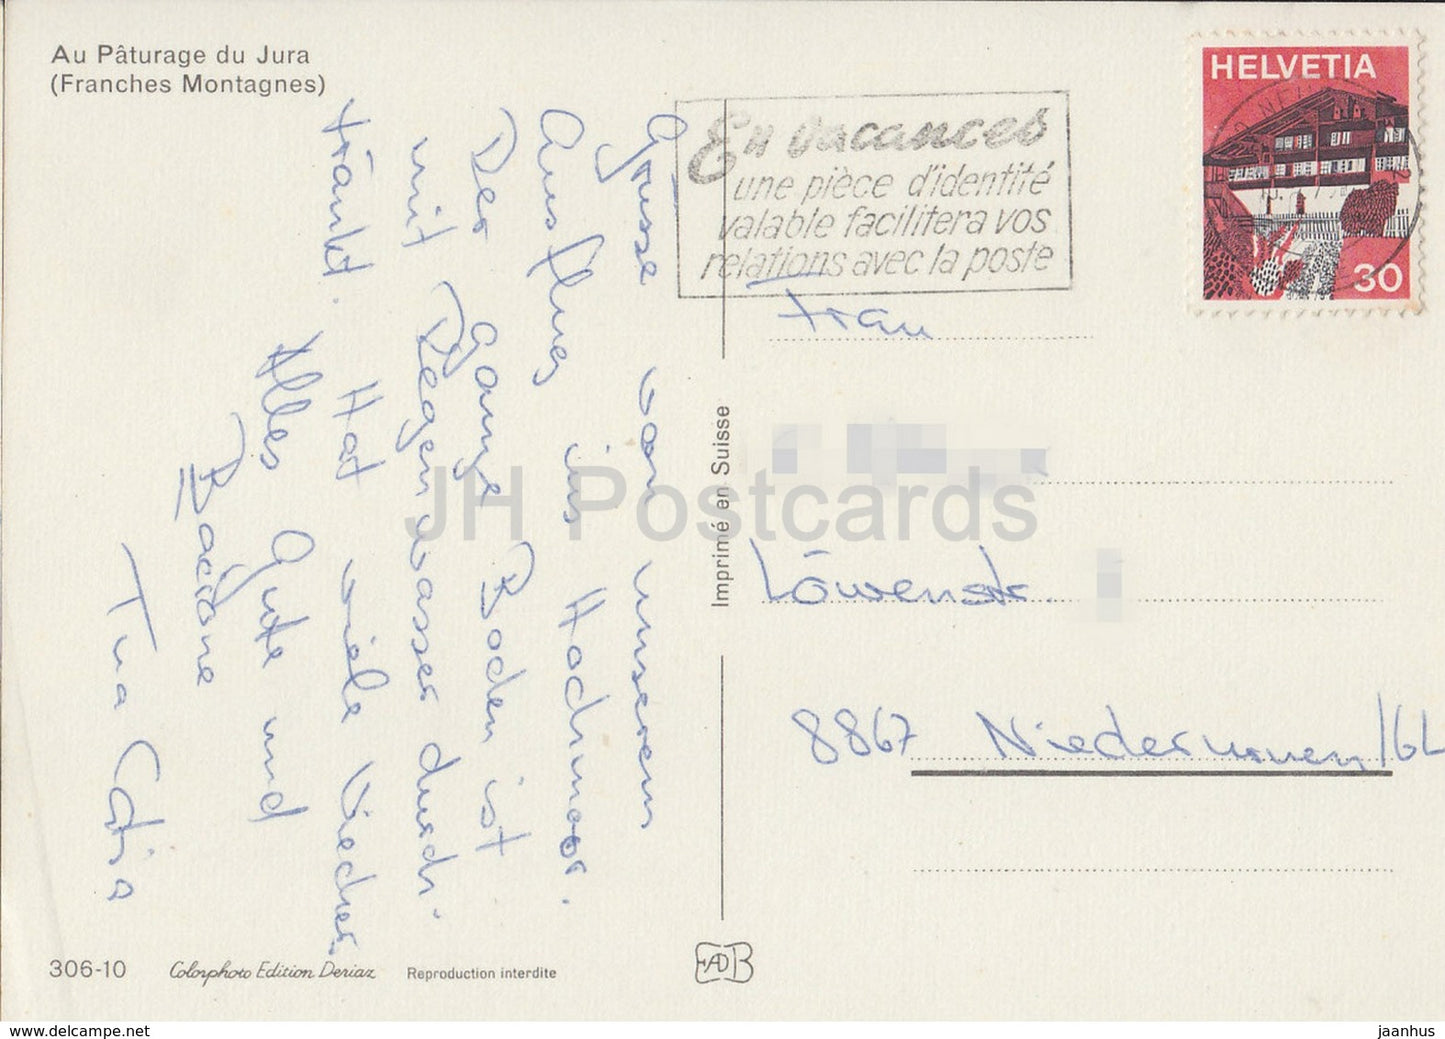 Au Pâturage du Jura
(Franches Montagnes)
En vacances
une pièce d'identité
valable facilitera vos
relations avec la poste
HELVETIA
30
Grüsse von unserem
Ausflug ins Hochmoor.
Der ganze Boden ist
mit Regenwasser durch-
tränkt. Hat viele Viecher
Alles Gute und
Tua Catia
Imprimé en Suisse
Frau
Löwenstr.
8867 Niederurnen/GL
306-10
Colorphoto Edition Deriaz
Reproduction interdite
JH Postcards
jaanhus - ansichtskarten-lexikon